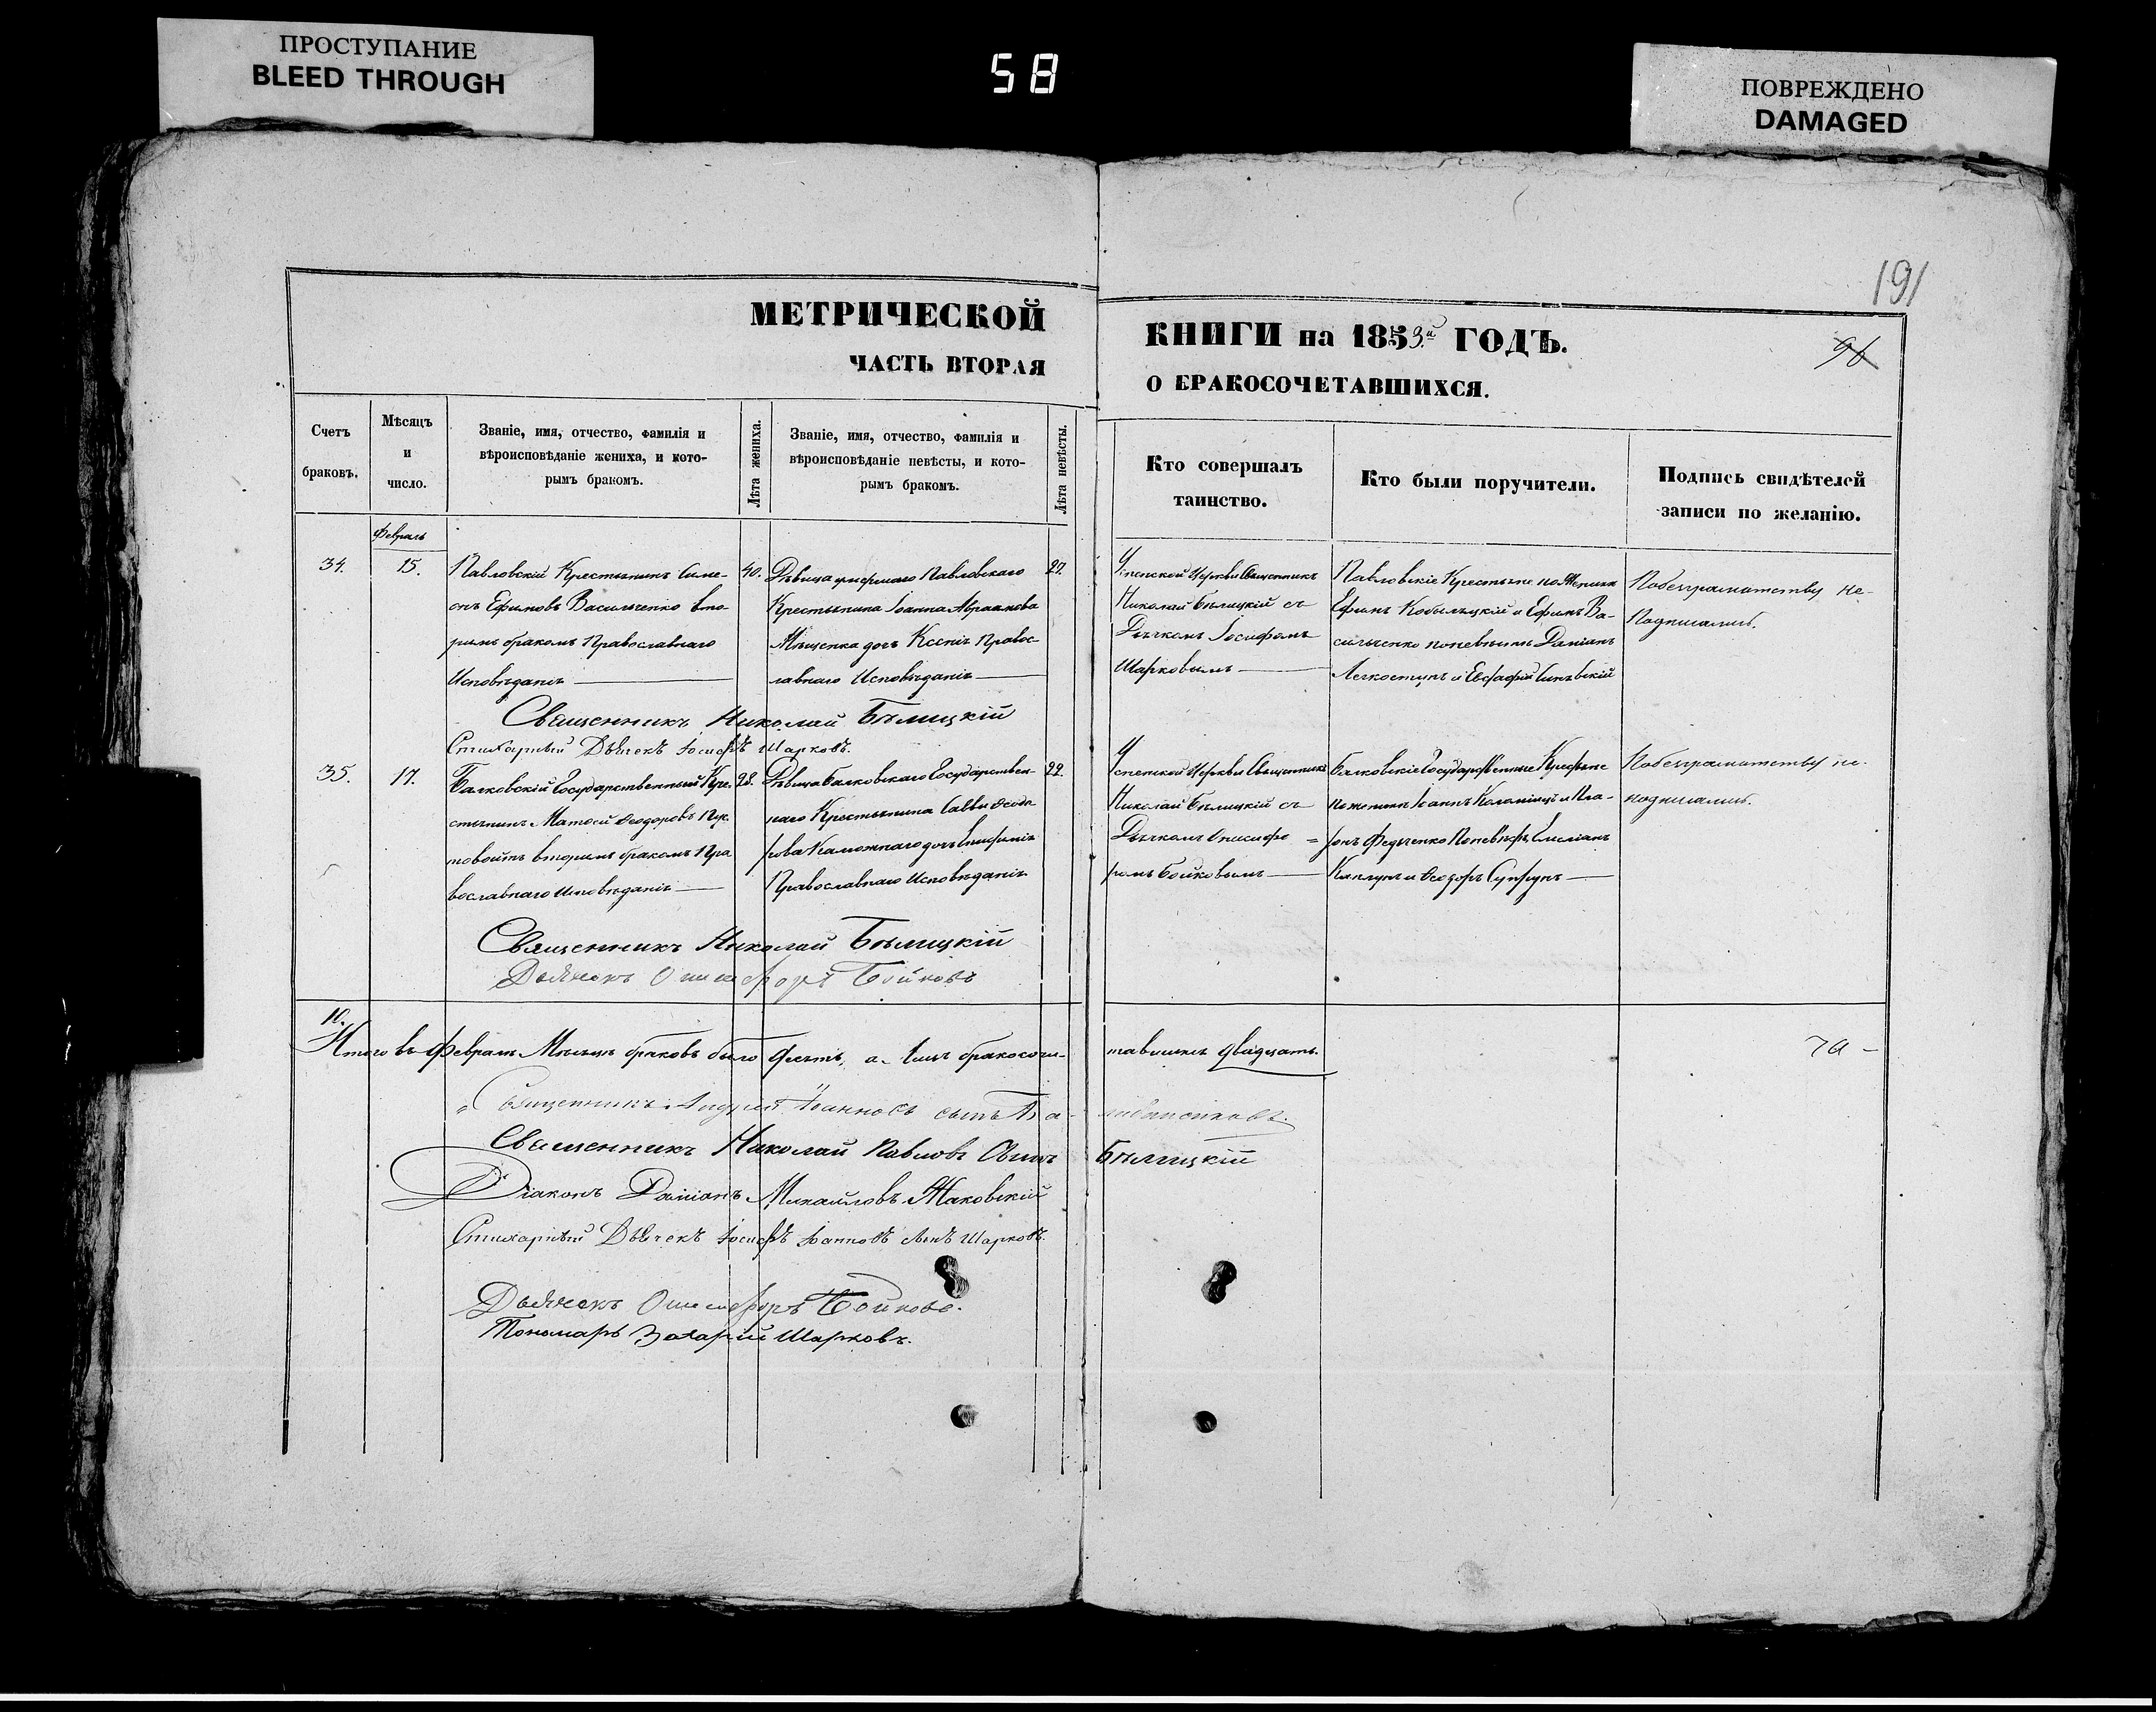 ПРОСТУПАНИЕ
BLEED THROUGH
58
ПОВРЕЖДЕНО
DAMAGED
191
МЕТРИЧЕСКОЙ
ЧАСТЬ ВТОРАЯ
КНИГИ на 1853й ГОДЪ.
О БРАКОСОЧЕТАВШИХСЯ.
96
Счетъ
браковъ.
Мѣсяцъ
и
число.
Званіе, имя, отчество, фамилія и
вѣроисповѣданіе жениха, и кото-
рымъ бракомъ.
Лѣта жениха.
Званіе, имя, отчество, фамилія и
вѣроисповѣданіе невѣсты, и кото-
рымъ бракомъ.
Лѣта невѣсты.
Кто совершалъ
таинство.
Кто были поручители.
Подпись свидѣтелей
записи по желанію.
Февраль
34.
15.
Павловскій Крестьянинъ Симе-
онъ Ефимовъ Васильченко вто-
рымъ бракомъ Православнаго
Исповѣданія
40.
Дѣвица умершаго Павловскаго
Крестьянина Іоанна Авраамова
дочь Ксенія Правос-
лавнаго Исповѣданія
Успенской Церкви Священникъ
Николай Бѣлицкій съ
Дьячкомъ Іосифомъ
Шарковымъ
Павловскіе Крестьяне по Женихѣ
Ефимъ и Ефимъ Ва-
сильченко по невѣстѣ Даміанъ
Легкоступъ и
По безграмотству не-
подписались.
Священникъ Николай Бѣлицкій
Стихарный Дьячекъ Іосифъ Шарковъ.
35.
17.
Балковскій Государственный Кре-
стьянинъ Матѳей Ѳеодоровъ Пус
товойтъ вторымъ бракомъ Пра
вославнаго Исповѣданія
28.
Дѣвица Балковскаго Государствен-
наго Крестьянина Саввы Ѳеодо
рова дочь
Православнаго Исповѣданія
22.
Успенской Церкви Священникъ
Николай Бѣлицкій съ
Дьячкомъ Онисифо =
ромъ Бойковымъ
Балковскіе Государственные Крестьяне
по женихѣ Іоаннъ Коломіецъ и Пла-
тонъ Федченко По невѣстѣ Емеліанъ
Каплунъ и Ѳеодоръ
По безграмотству не-
подписались.
Священникъ Николай Бѣлицкій
Дьячокъ Онисифоръ Бойковъ
10.
Итого въ Февралѣ Мѣсяцѣ браковъ было десять, а лицъ бракосоче-
тавшихся двадцать.
Священникъ Андрей Іоанновъ сынъ
Священникъ Николай Павловъ Сынъ Бѣлицкій
Діаконъ Даміанъ Михайловъ Жаковскій
Стихарный Дьячекъ Іосифъ Іоанновъ сынъ Шарковъ.
Дьячокъ Онисифоръ Бойковъ.
Пономарь Захарій Шарковъ.